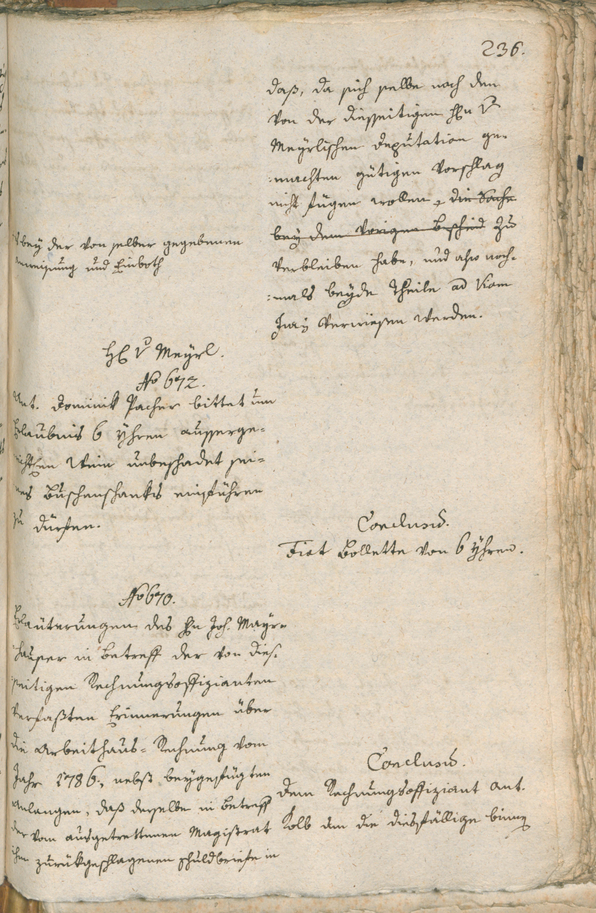 236.
daß, da sich selbe nach den
von der diesseitigen Hrn v
Meyrlischen Deputation ge-
machten gütigen Vorschlag
nicht fügen wollen, die Sache
bey dem vorigen Bescheid zu
verbleiben habe, und also noch-
mals beyde Theile ad viam
Juris verwiesen werden.
bey der von selber gegebenen
und Einboth
H v Meyrl.
No 672.
Ant. Dominik Pacher bittet um
Erlaubnis 6 Yhren ausserge-
Wein unbeschadet sei-
nes Buschenschanks einführen
zu dürfen.
Conclusum.
Fiat Bollette von 6 Yhren.
No 670.
Erläuterungen des Hn Joh. Mayr-
hauser in Betreff der von dies-
seitigen Rechnungsoffizianten
verfaßten Erinnerungen über
die Arbeithaus-Rechnung vom
Jahr 1786, nebst beygefügten
Anlangen, daß derselbe in Betreff
der vom ausgetrettenen Magistrat
ihm zurückgeschlagenen Schuldbriefe in
Conclusum.
Dem Rechnungsoffiziant Ant.
Kolb um die diesfällige binnen